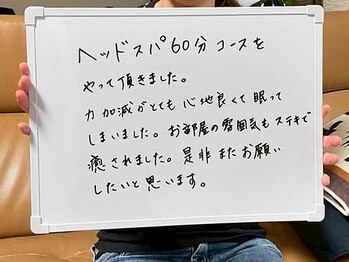 ヘッドスパ60分コースを
やって頂きました。
力加減がとても心地良くて眠って
しまいました。お部屋の雰囲気もステキで
癒されました。是非またお願い
したいと思います。